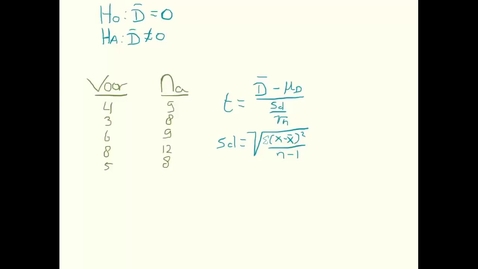 H₀: D̄ = 0
Hᴀ: D̄ ≠ 0
Voor Na
4 9
3 8
6 9
8 12
5 8
t = (D̄ - μD) / (sd / √n)
sd = √(Σ(x-x̄)² / (n-1))